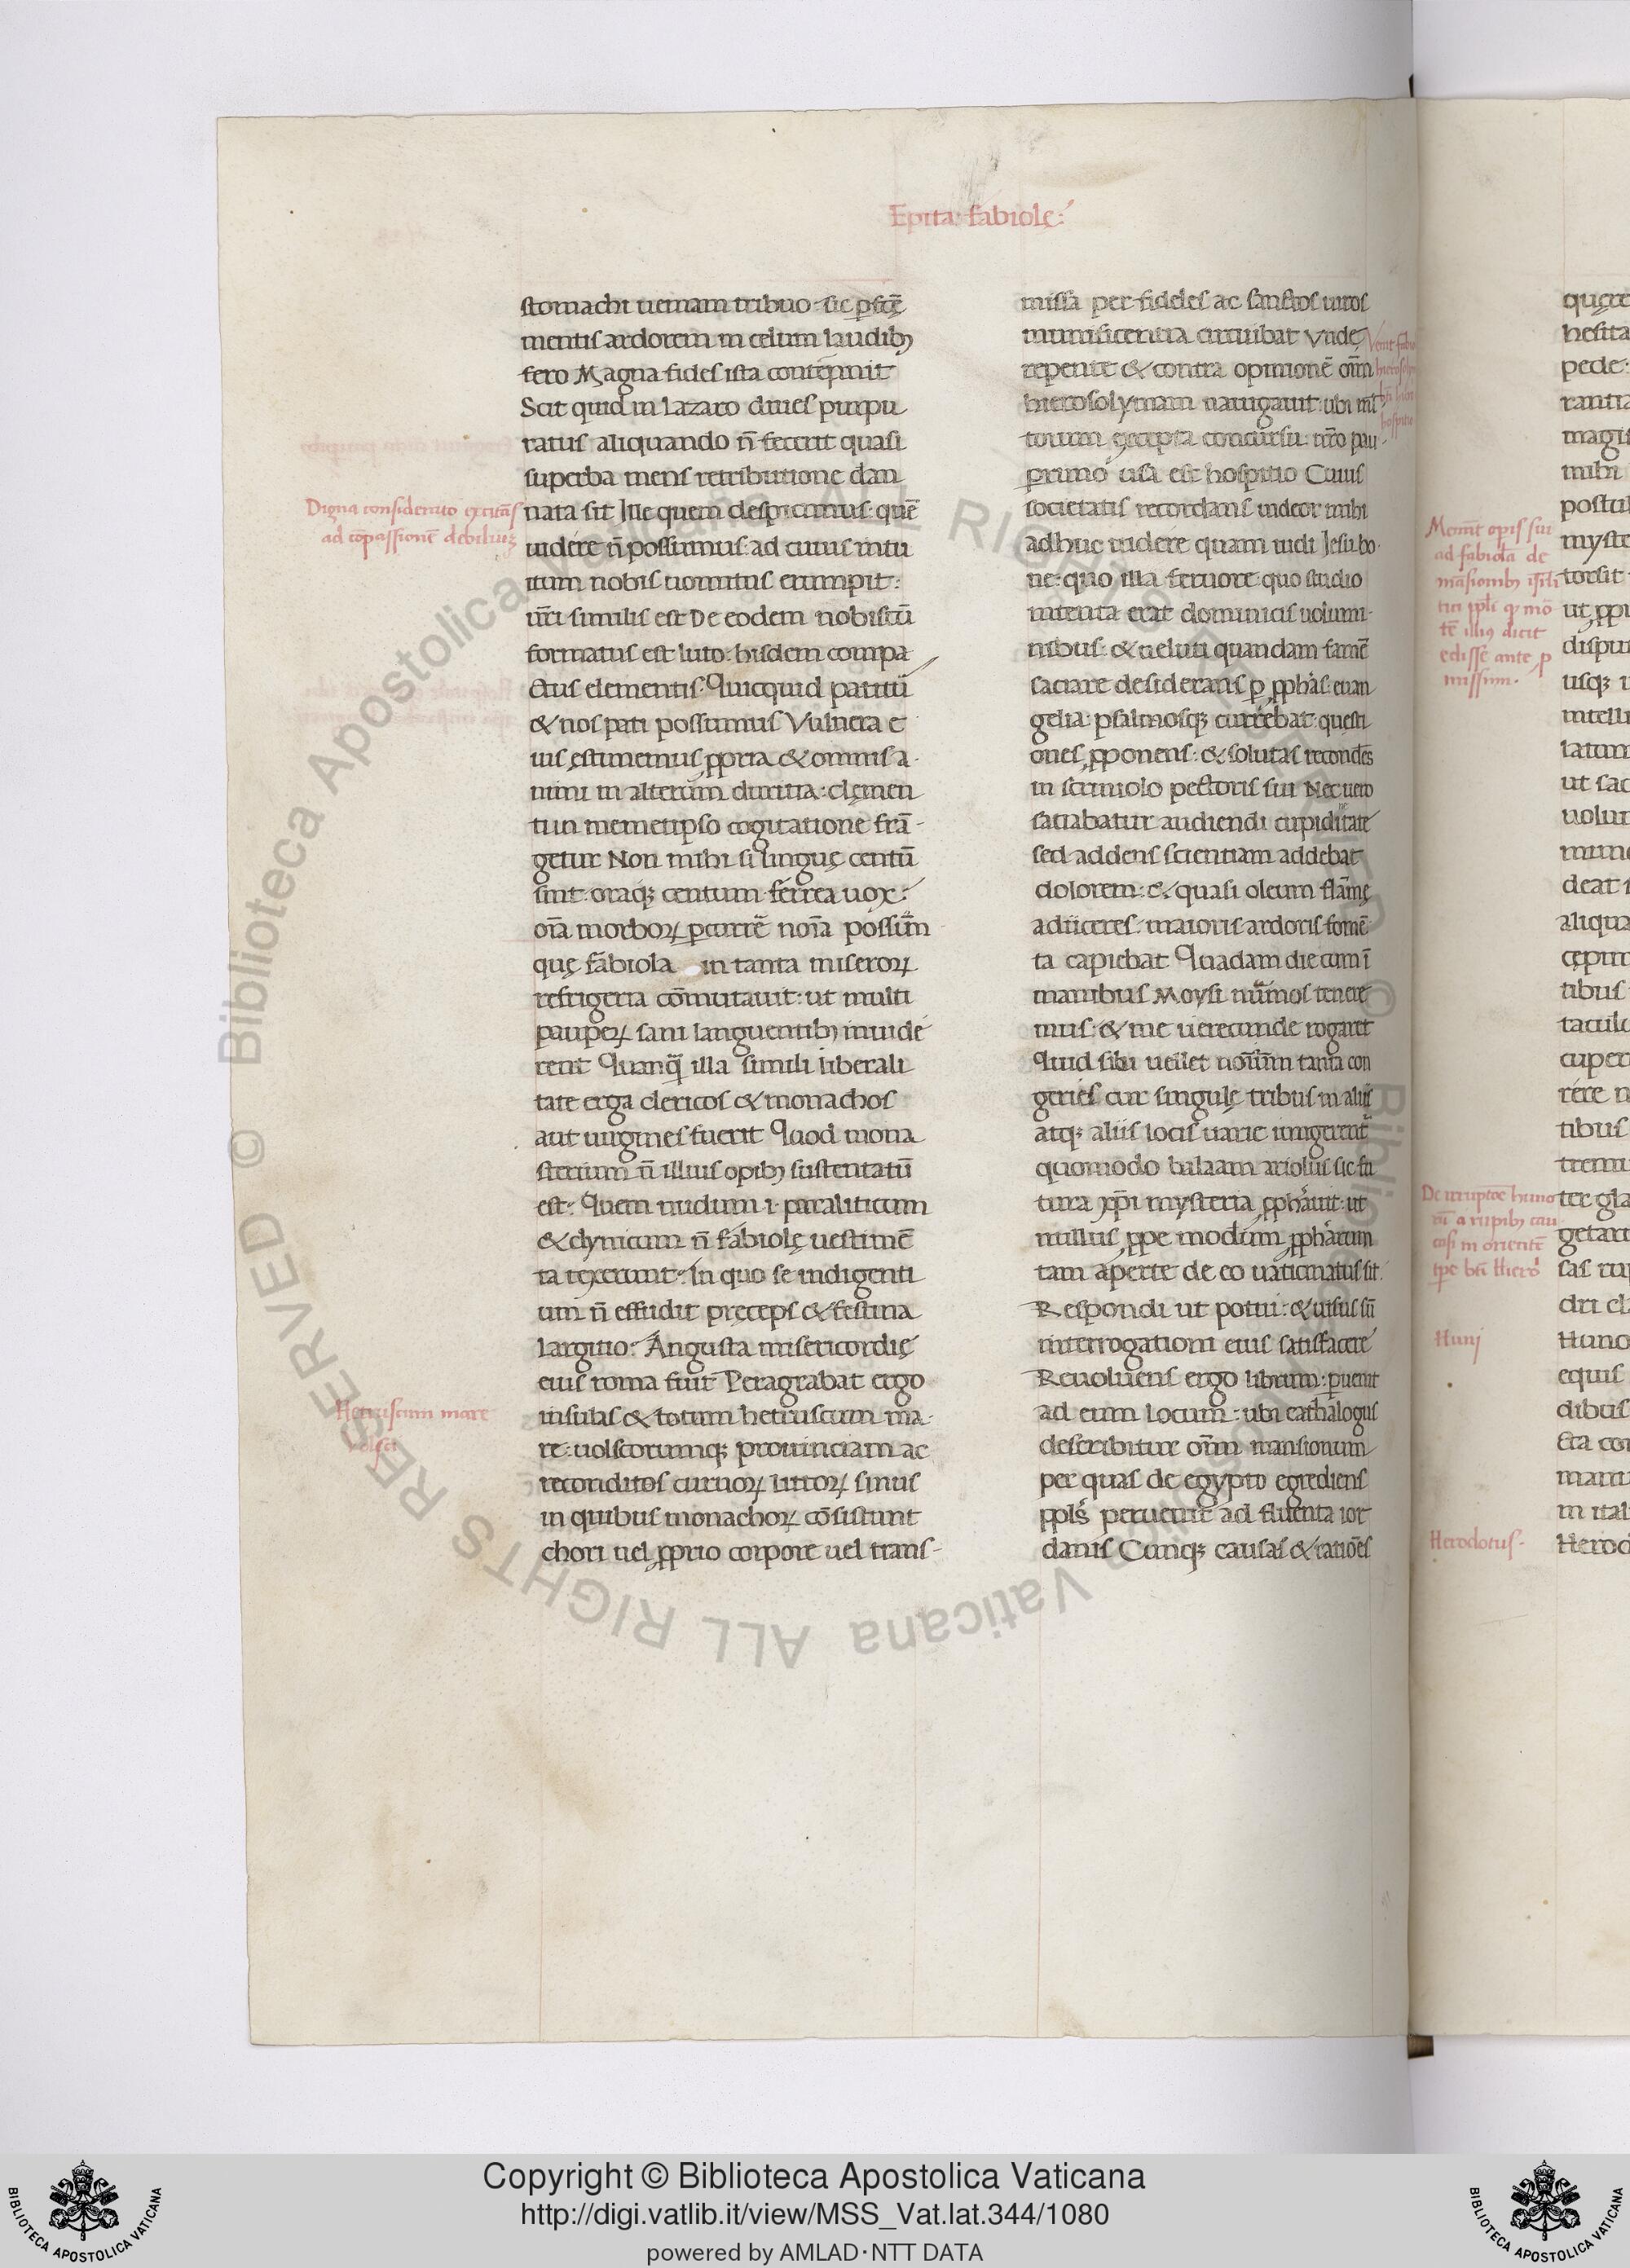 Epita. fabiolę:
stomachi ueniam tribuo. sic pfectę
mentis ardorem in celum laudibꝫ
fero Magna fides ista contempnit
Scit quid in Lazaro diues purpu
ratus aliquando n̄ fecerit quasi
superba mens retributione dam
nata sit Ille quem despicimus: quē
uidere n̄ possumus: ad cuius intu
itum nobis uomitus erumpit:
nr̄i similis est De eodem nobiscū
formatus est luto: hisdem compa
ctus elementis. Quicquid patitū
& nos pati possumus Vulnera e
ius ęstimemus ꝓpria & omnis a
nimi in alterum duritia: clęmen
ti in memetipso cogitatione frā
getur Non mihi si linguę centū
sint: oraqꝫ centum. ferrea uox:
oīa morboꝝ ꝑcurrē noīa possum̄
quę fabiola in tanta miseroꝝ
refrigeria cōmutauit: ut multi
pauperꝝ sani languentibꝫ inuide
rent Quanq̄ illa simili liberali
tate erga clericos & monachos
aut uirgines fuerit Quod mona
sterium n̄ illius opibꝫ sustentatū
est: Quem nudum .i. paraliticum
& clynicum n̄ fabiolę uestimē
ta texerunt. In quo se indigenti
um n̄ effudit pręceps & festina
largitio: Angusta misericordię
eius roma fuit Peragrabat ergo
insulas & totum hetruscum ma
re: uolscorumqꝫ prouinciam ac
reconditos curuoꝝ littoꝝ sinus
in quibus monachoꝝ cōsistunt
chori uel ꝓprio corpore uel trans-
missa per fideles ac sanctos uiros
munificentia circuibat Vnde
repente & contra opinionē om̄m
hierosolymam nauigauit: ubi ml̄
torum excepta concursu. nr̄o pau
primo usa est hospitio Cuius
societatis recordans uideor mihi
adhuc uidere quam uidi Iesu bo
ne: quo illa feruore: quo studio
intenta erat dominicis uolumi
nibus: & ueluti quandam famē
saciare desiderans ꝑ ꝓphas: euan
gelia: psalmosqꝫ currebat: questi
ones ꝓponens: & solutas recondēs
in scriniolo pectoris sui Nec uero
satiabatur audiendi cupiditate
sed addens scientiam addebat
dolorem: & quasi oleum flāmę
adiiceres: maioris ardoris fomē
ta capiebat Quadam die cum ī
manibus Moysi nūmos tenere
mus: & me uerecunde rogaret
Quid sibi uellet noīum tanta con
geries cur singulę tribus in aliis
atqꝫ aliis locis uarie iungerent
quomodo balaam ariolus sic fu
tura xp̄i mysteria ꝓphauit: ut
nullus ꝓpe modum ꝓpharum
tam aperte de eo uaticinatus sit.
Respondi ut potui: & uisus sū
interrogationi eius satisfacere
Reuoluens ergo librum: ꝑuenit
ad eum locum: ubi cathalogus
describitur om̄m mansionum
per quas de egypto egrediens
ppl̄s peruenit ad fluenta ior
danis Cumqꝫ causas & ratiōes
Digna consideratio excitās
ad cōpassionē debiliuꝫ
Hetruscum mare
Volsci
Venit fabio
hierosoly
hospitio
Memīt opis sui
ad fabiolā de
māsionibꝫ isrl̄i
tici ppl̄i qꝫ mō
tē illiꝰ dicit
edisse ante ꝓ
missum.
De irruptōe huno
a rupibꝫ cau
casi in orientē
tpe bt̄i Hiero
Hunj
Herodotus.
quęre
hesita
pede:
rantia
magis
mihi
postul
myste
torsit
ut ꝓpu
dispu
usqꝫ
intelli
latum
ut sac
uolun
mund
deat
aliqua
cępim
tibus
tacul
cuper
rere n
tibus
tremu
ter gla
getaru
sas ru
dri cl
Huno
equis
dibus
Eta con
manu
in itali
Herod
Copyright © Biblioteca Apostolica Vaticana
http://digi.vatlib.it/view/MSS_Vat.lat.344/1080
powered by AMLAD・NTT DATA
BIBLIOTECA APOSTOLICA VATICANA
BIBLIOTECA APOSTOLICA VATICANA